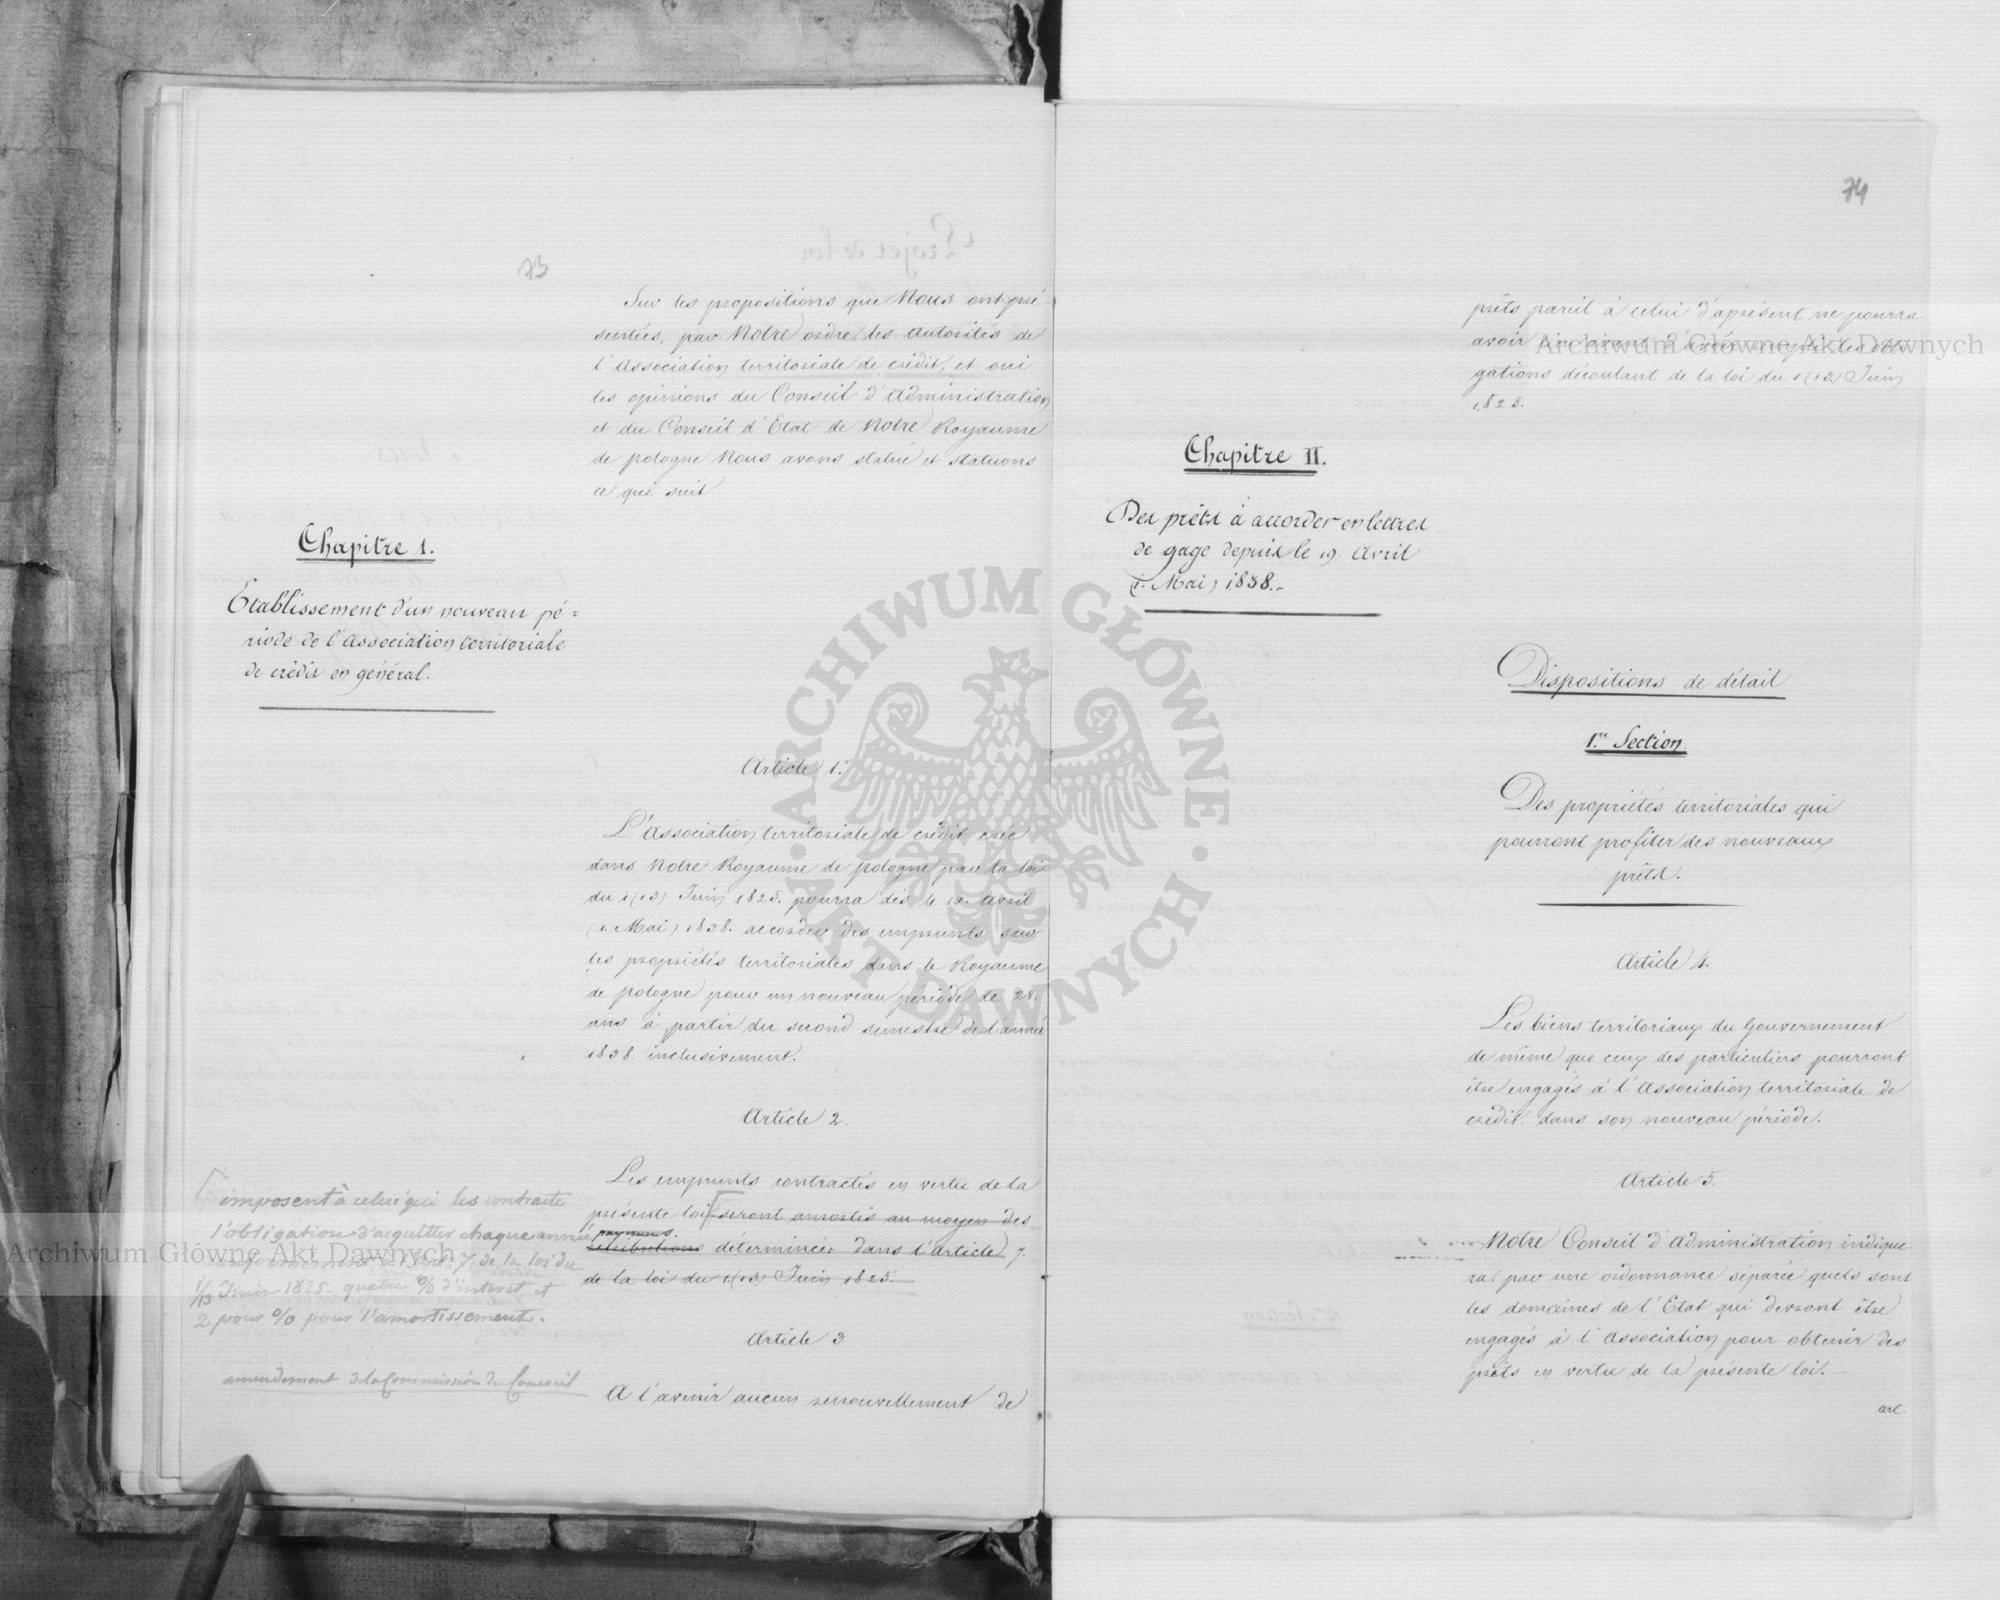 73
Sur les propositions que Nous ont pré-
sentées, par Notre ordre les autorités de
l'Association territoriale de crédit, et oui
les opinions du Conseil d'Administration
et du Conseil d'Etat de Notre Royaume
de pologne Nous avons statué et statuons
ce qui suit
Chapitre 1.
Etablissement d'un nouveau pé=
riode de l'Association territoriale
de crédit en général.
Article 1.
L'Association territoriale de crédit créé
dans Notre Royaume de pologne par la loi
du 1 (13) Juin 1825. pourra dès le 19. Avril
(1. Mai) 1838. accorder des emprunts sur
les propriétés territoriales dans le Royaume
de pologne pour un nouveau période de 28.
ans à partir du second semestre de l'année
1838. inclusivement.
Article 2.
Les emprunts contractés en vertu de la
présente loi seront amortis au moyen des
payemens.
rétributions déterminées dans l'article 7.
de la loi du 1.(13) Juin 1825.
imposent à celui qui les contracte
l'obligation d'acquitter chaque année
7 de la loi du
1/13 Juin 1825 quatre % d'interet et
2 pour % pour l'amortissement.
amendement de la Commission du Conseil
Article 3
A l'avenir aucun renouvellement de
74
prêts pareil à celui d'aprésent ne pourra
avoir lieu avant l'
gations découlant de la loi du 1 (13) Juin
1825.
Chapitre II.
Des prêts à accorder en lettres
de gage depuis le 19. Avril
(1. Mai) 1838.-
Dispositions de détail
1.re Section
Des propriétés territoriales qui
pourront profiter des nouveaux
prêts.
Article 4.
Les biens territoriaux du Gouvernement
de même que ceux des particuliers pourront
être engagés à l'Association territoriale de
crédit dans son nouveau période.
Article 5.
Notre Conseil d'Administration indique
ra par une ordonnance séparée quels sont
les domaines de l'Etat qui devront être
engagés à l'Association pour obtenir des
prêts en vertu de la présente loi.-
art.
Archiwum Główne Akt Dawnych
Archiwum Główne Akt Dawnych
ARCHIWUM GŁÓWNE AKT DAWNYCH